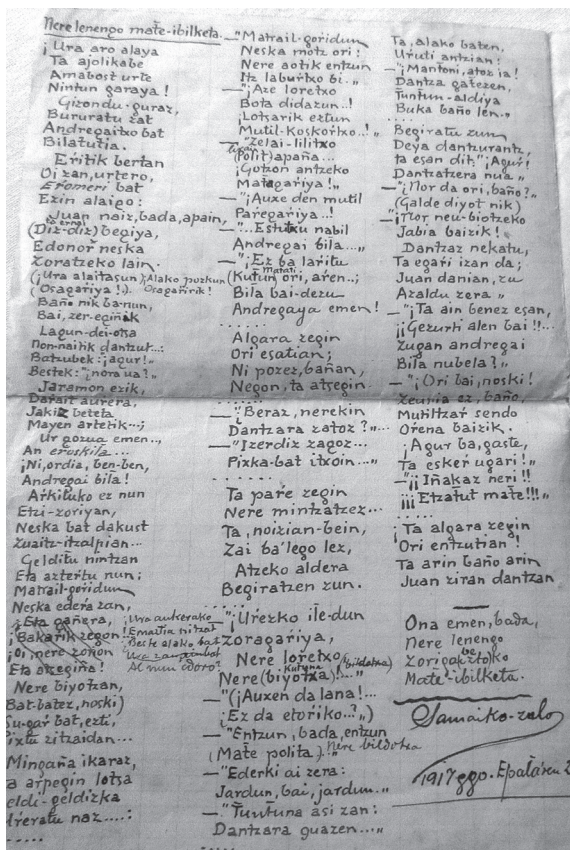 Nere lenengo mate-ibilketa.
¡Ura aro alaya
Ta ajolikabe
Amabost urte
Nintun garaya!
Gizondu-guraz,
Bururatu zat
Andregaitxo bat
Bilatutia.
Eŕitik bertan
Oi zan, urtero,
Eromeri bat
Ezin alaigo:
Juan naiz, bada, apain,
(Diz-diz) begiya,
Edonor neska
Zoratzeko lain.
(¡Ura alaitasun Alako pozkun
Osagariya!). Osagaŕirik!
Baño nik ba-nun,
Bai, zer-egiñik
Lagun-dei-otsa
Non-naitik dantzut...:
Batzubek: ¡agur!"
Bestek: "¡nora ua?"
Jaramon ezik,
Daŕait auŕera,
Jakiz beteta
Mayen artetik...;
Ur gozua emen..,
An eroskila...
¡Ni, ordia, ben-ben,
Andregai bila!
Aŕkituko ez nun
Etzi-zoriyan,
Neska bat dakust
Zuaitz-itzalpian...
Gelditu nintzan
Eta aztertu nun:
Matrail-goridun
Neska edera zan,
¡Eta gañera,
¡Bakarik zegon!
¡Oi, nere zoñon
Eta atsegiña!
¡Ura aukerako
Beste alako bat
Al nun edoro?
Nere biyotzan,
Bat-batez, noski)
Su-gaŕ bat, ezti,
zitzaidan...
Mingaña ikaraz,
a arpegin lotsa
eldi-geldizka
naz....:
.....
—"Matrail-goridun
Neska motz ori:
Nere aotik entzun
Itz laburtxo bi.."
—"¡Aze loretxo
Bota didazun..!
¡Lotsarik eztun
Mutil-koskoŕtxo!.."
"Zelai-lilitxo
(Polit) apaña...
¡Gotzon antzeko
Matagariya!"
—"¡Auxe den mutil
Paregariya..!
—"..Estutxu nabil
Andregai bila..."
—"¡Ez ba laritu
(Kutun) ori, aren..;
Maitati
Bila bai-dezu
Andregaya emen!
......
Algara zegin
Ori esatian;
Ni pozez, bañan,
Negon, ta atsegin.
......
—"¡Beraz, nerekin
Dantzara zatoz?"...
—"Izerdiz zagoz...
Pixka-bat itxoin..."
......
Ta pare zegin
Nere mintzatzez...
Ta, noizian-bein,
Zai ba'lego lez,
Atzeko aldera
Begiratzen zun.
......
—"¡Urezko ile-dun
Zoragariya,
Nere loretxo (bildotxa)
Kutuna
Nere (biyotza)!..."
—"(¡Auxen da lana!...
¡Ez da etoriko...?")
—"Entzun, bada, entzun
(Mate polita)!" Nere bildotxa
—"Ederki ai zera:
Jardun, bai, jardun..."
—"Tuntuna asi zan:
Dantzara guazen..."
.....
Ta, alako baten,
Uruti antzian:
—"¡Mantoni, atoz ia!
Dantza gatezen,
Tuntun-aldiya
Buka baño len.."
Begiratu zun
Deya dantzurantz,
ta esan dit: "¡Agur!
Dantzatzera nua"
—"¡Nor da ori, baño?"
(Galde diyot nik)
—"¡Nor, neu-biotzeko
Jabia baizik!
Dantzaz nekatu,
Ta egari izan da;
Juan danian, zu
Azaldu zera"
—"¡Ta ain benez esan,
¡¡Gezurti alen bai!!...
Zugan andregai
Bila nubela?"
—"¡Ori bai, noski!
Zeunia ez, baño,
Mutiltzar sendo
Orena baizik.
¡Agur ba, gaste,
Ta esker ugari!"
—"¡¡Iñakaz neri!!
¡¡¡Etzatut mate!!!"
¡Ta algara zegin
Ori entzutian!
Ta arin baño arin
Juan ziran dantzan
Ona emen, bada,
Nere lenengo
be
Zorigaiztoko
Mate-ibilketa.
1917 ggo.